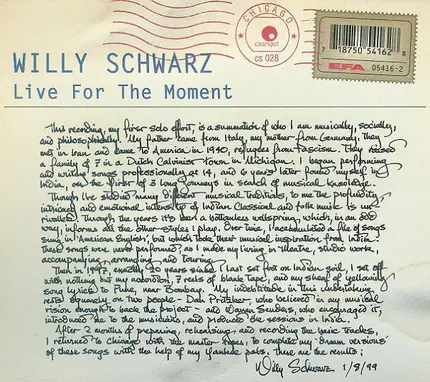 CHICAGO
clearspot
cs 028
7 18750 54162 8
EFA 05416-2
WILLY SCHWARZ
Live For The Moment
This recording, my first solo effort, is a summation of who I am musically, socially,
and philosophically. My father came from Italy, my mother from Germany, they
met in Iran and came to America in 1940, refugees from Fascism. They raised
a family of 7 in a Dutch Calvinist town in Michigan. I began performing
and writing songs professionally at 14, and 6 years later found myself in
India, on the first of 3 long journeys in search of musical knowledge.
Though I've studied many different musical traditions, to me the profundity,
intricacy and emotional intensity of Indian Classical and folk music is un-
rivalled. Through the years it's been a bottomless wellspring, which, in an odd
way, informs all the other styles I play. Over time, I accumulated a file of songs
sung in "American English", but which take their musical inspiration from India.
These songs were never performed, as I make my living in theatre, studio work,
accompanying, arranging, and touring.
Then in 1997, exactly 20 years since I last set foot on Indian soil, I set off
with nothing but my accordion, 7 reels of blank tape, and my sheaf of yellowing
song lyrics to Pune, near Bombay. My indebtitude in this undertaking
rests squarely on two people - Dan Pritzker, who believed in my musical
vision enough to back the project - and Warren Senders, who engineered it,
introduced me to the musicians, and produced the sessions in India.
After 2 months of preparing, rehearsing, and recording the basic tracks,
I returned to Chicago with the master tapes, to complete my "dream versions"
of these songs with the help of my Yankee pals. These are the results:
Willy Schwarz 1/8/99